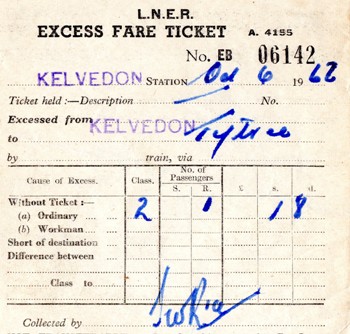 L.N.E.R.
EXCESS FARE TICKET A. 4155
No. EB 06142
KELVEDON STATION Oct 6 1962
Ticket held :—Description No.
Excessed from KELVEDON
to Tiptree
by train, via
Cause of Excess. Class. No. of Passengers £ s. d.
S. R.
Without Ticket :—
(a) Ordinary 2 1 1 8
(b) Workman
Short of destination
Difference between
Class to
Collected by